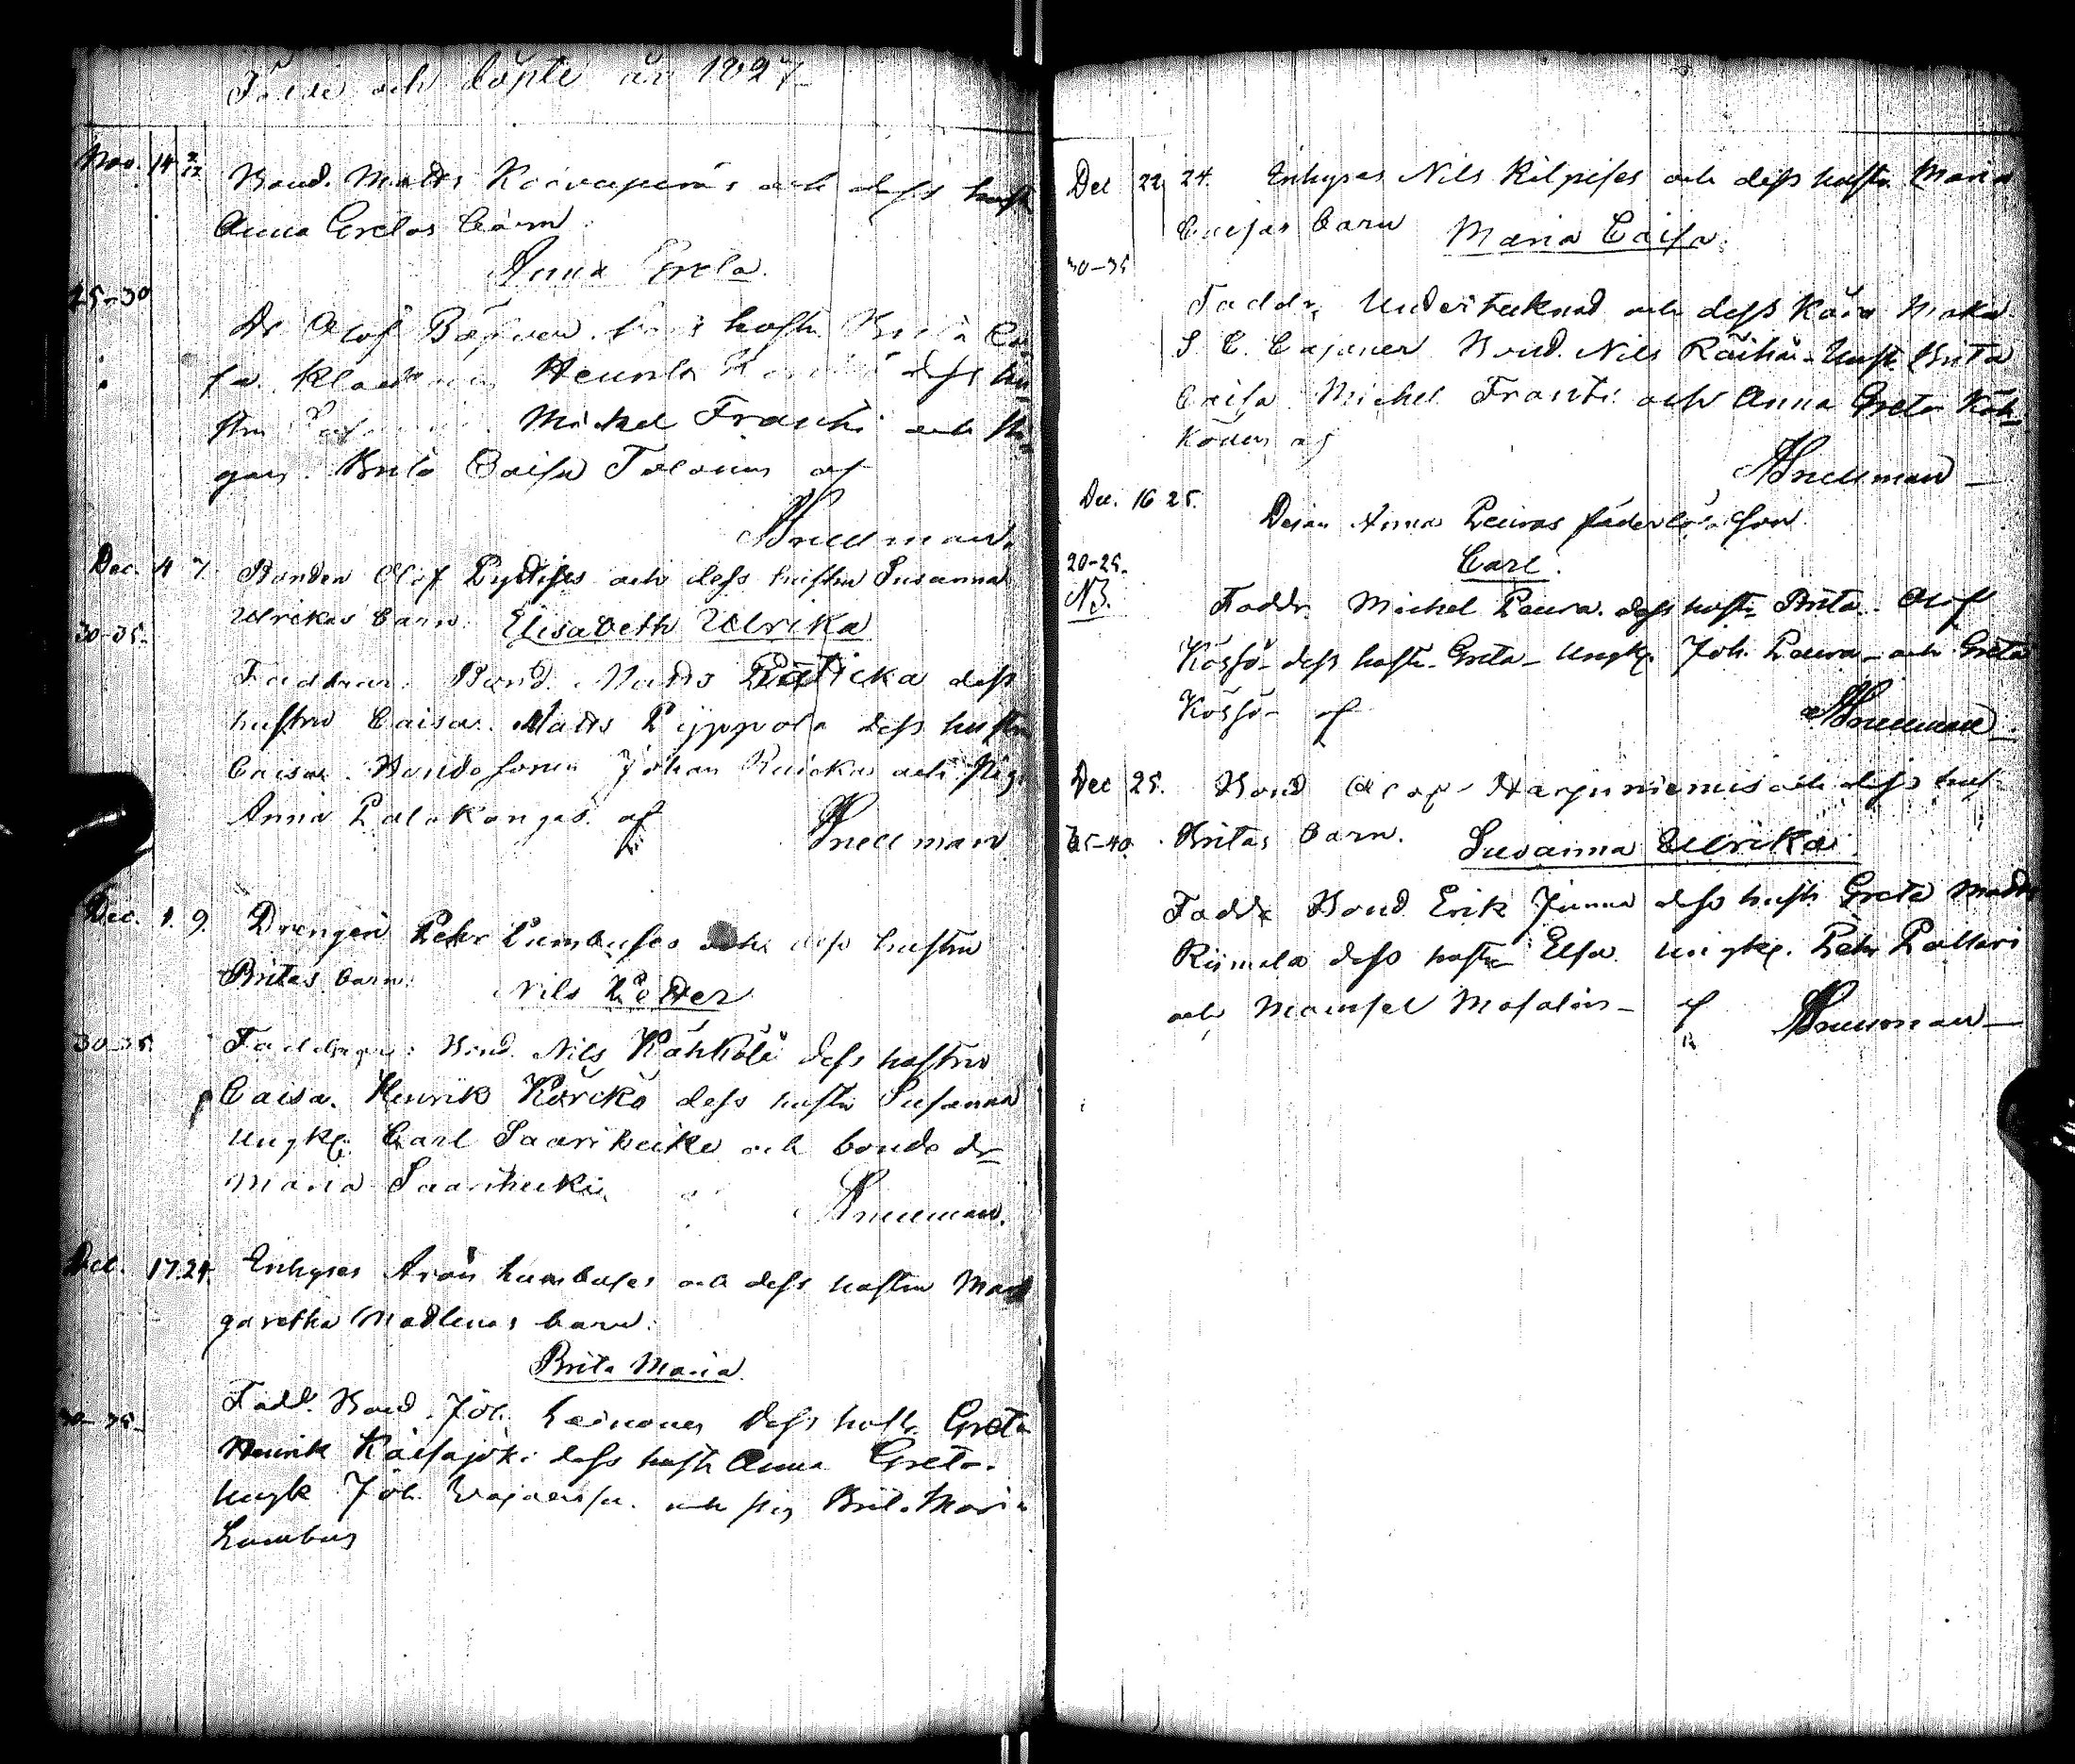 Födde och döpte år 1827
Nov. 14 2/12 Bond. Matts Koivaperäs och dess hustr
Anna Gretas barn
Anna Greta.
25-30
Dr Olof hustr Brita Cai
sa. Henrik dess hu
stru Michel Frantti och pi-
gan. Brita Caisa Tolonen af
Snellman.
Dec. 4 7. Bonden Olof och dess hustru Susanna
Ulrikas barn. Elisabeth Ulrika
30-35.
Faddrar: Bond. Matts dess
hustru Caisa. Matts Pyppola dess hustru
Caisa. Bondesonen Johan och pig.
Anna Palokangas. af Snellman
Dec. 1. 9. Drengen Pehr Lumbuses och dess hustru
Britas barn: Nils Petter
30-35
Faddrar: Bond. Nils Kähkölä dess hustru
Caisa. Henrik Körkö dess hustr Susanna
Ungk. Carl Saariheike och bonde dr
Maria Saariheiki Snellman.
Dec. 17. 24. Enhyses Aron Lumbuses och dess hustru Mar
garetha Madlenas barn.
Brita Maria
30-35.
Fadd. Bond. Joh. Leinonen dess hustr. Greta
Henrik dess hustr Anna Greta.
Ungk Joh. och pig Brit. Maria
Lumbus
Dec 22 24. Enhyses Nils Kilpises och dess hustru Maria
Caisas barn Maria Caisa.
30-35
Faddr. Undertecknad och dess Kära Maka
S. C. Cajaner Bond. Nils Räihä Hust Brita
Caisa. Michel Frantti och Anna Greta Käh
könen af
Snellman
Dec. 16 25. Pejan Anna Pauras faderlösa son
Carl.
20-25.
NB.
Faddr. Michel Paura. dess hustr Brita. Olof
Kössö dess hustr. Greta Ungk. Joh. Paura och Greta
Kössö af Snellman
Dec 25. Bond Olof Harjuniemis och dess hus-
35-40. Britas barn. Susanna Ulrika
Faddr Bond Erik Junna dess hustr Greta Matts
Riimala dess hustru Elsa Ungk. Pehr Pallari
och Mamsel Masalin af Snellman